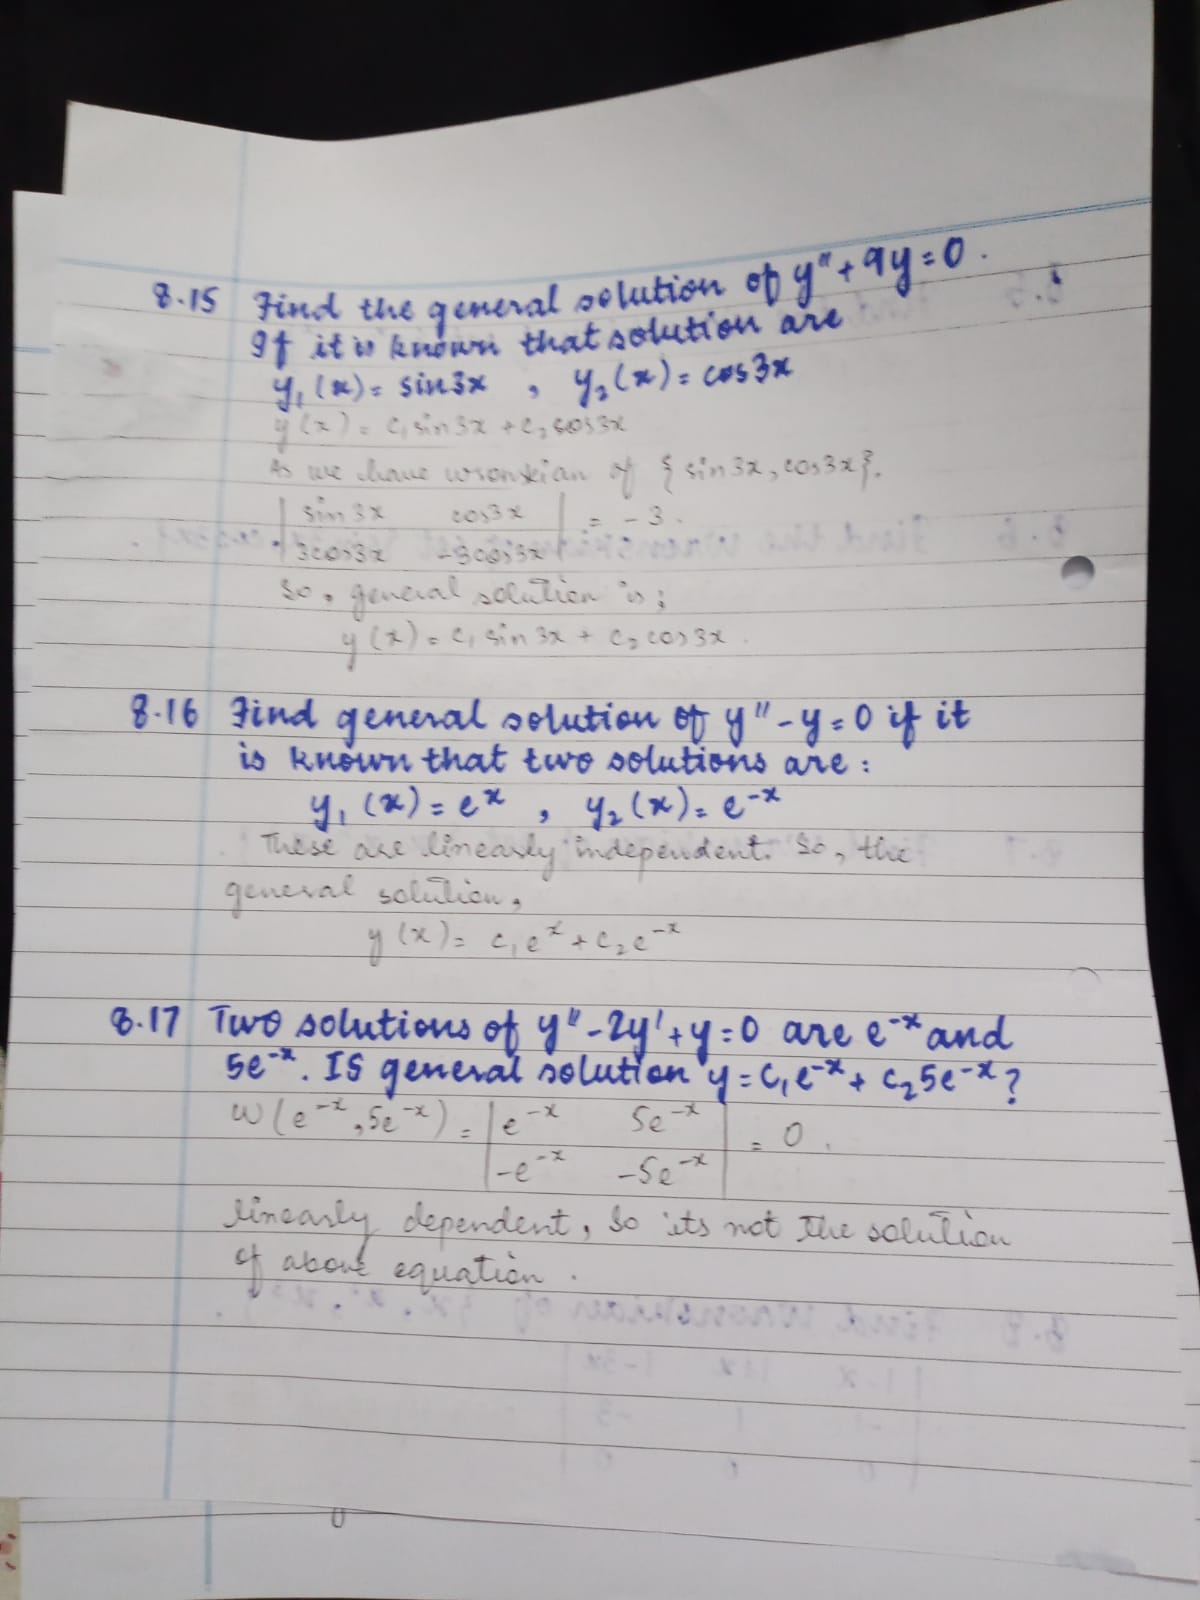 8.15 Find the general solution of y" + 9y = 0.
If it is known that solution are
y₁(x) = sin3x , y₂(x) = cos3x
y(x) = c₁sin3x + c₂cos3x
As we have wronskian of {sin3x, cos3x}.
| sin3x cos3x | = -3.
| 3cos3x -3cos3x |
So, general solution is;
y(x) = c₁ sin3x + c₂ cos3x.
8.16 Find general solution of y" - y = 0 if it
is known that two solutions are:
y₁(x) = eˣ , y₂(x) = e⁻ˣ
These are linearly independent. So, the
general solution,
y(x) = c₁eˣ + c₂e⁻ˣ
8.17 Two solutions of y" - 2y' + y = 0 are e⁻ˣ and
5e⁻ˣ. IS general solution y = c₁e⁻ˣ + c₂5e⁻ˣ?
W(e⁻ˣ, 5e⁻ˣ) = | e⁻ˣ 5e⁻ˣ | = 0.
| -e⁻ˣ -5e⁻ˣ |
linearly dependent, So its not the solution
of above equation.